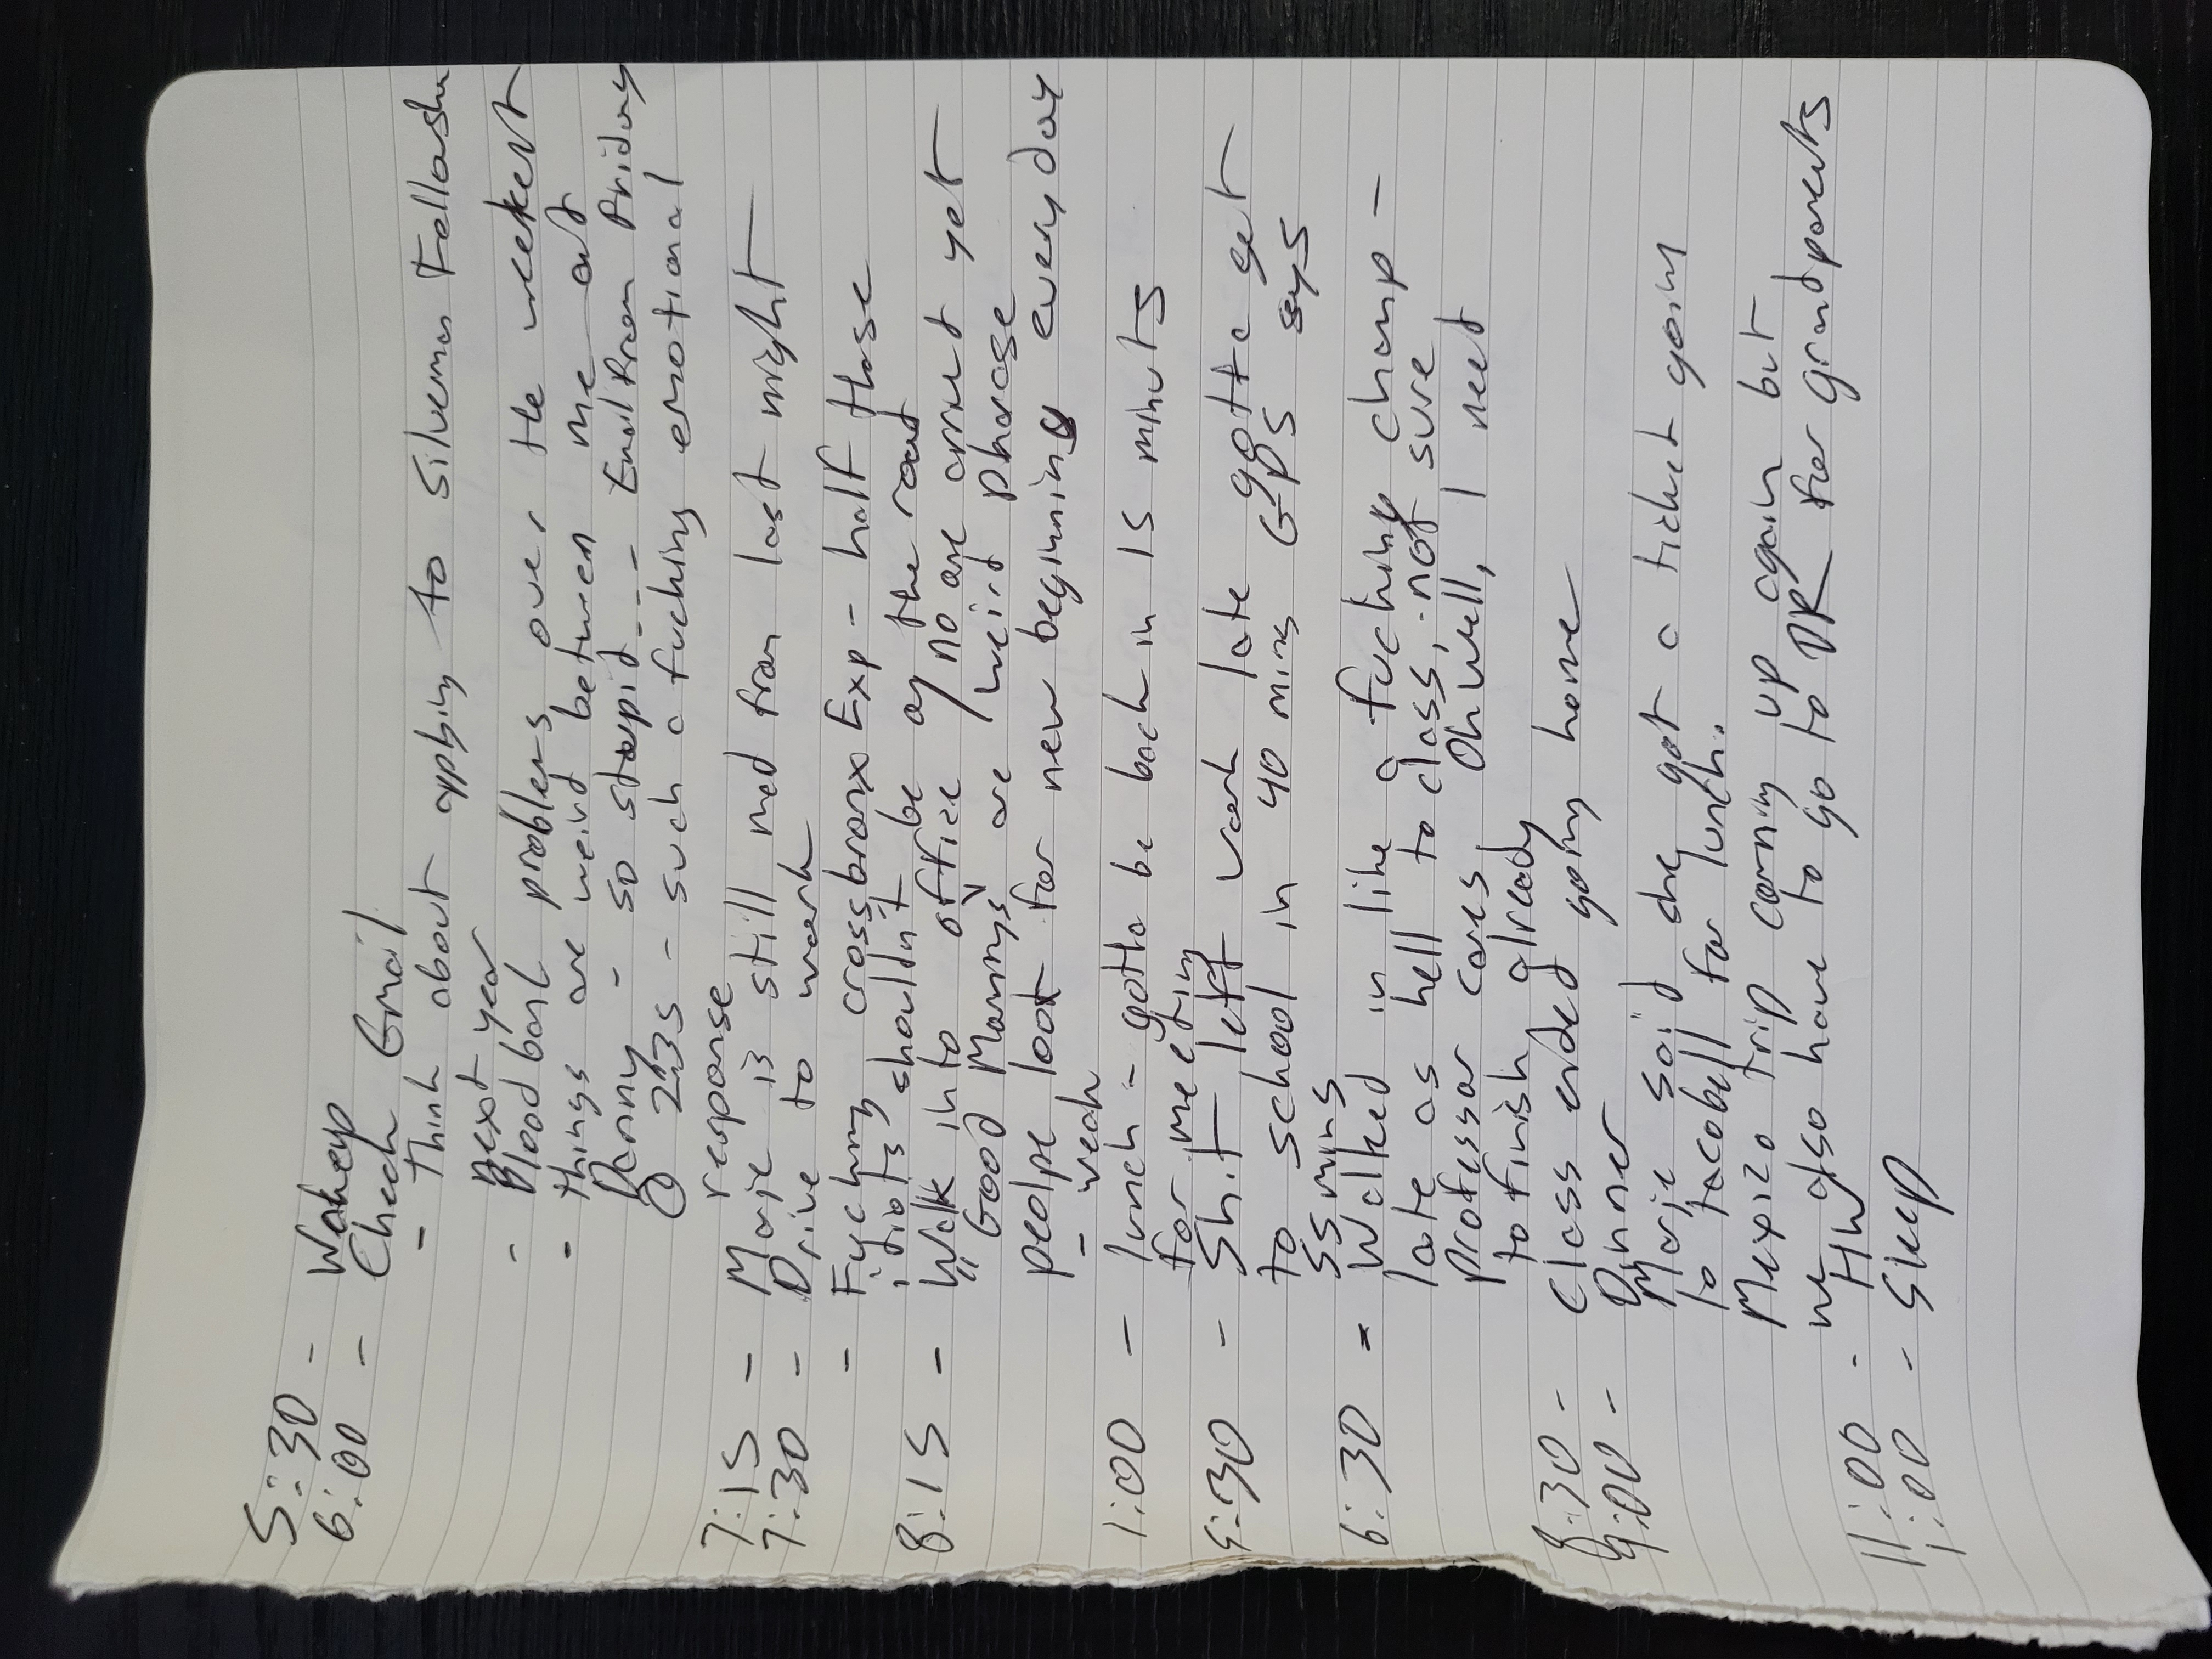 5:30 - Wakeup
6:00 - Check Email
- Think about applying to Silverman Fellowship
next year
- Blood bank problems over the weekend
- things are weird between me and
Danny - so stupid... Email from Friday
@ 2:35 - such a fucking emotional
response
7:15 - Marje is still mad from last night
7:30 - Drive to work
- Fucking crossbronx Exp - half those
idiots shouldn't be on the road
8:15 - Walk into office / no one arrived yet
"Good Mornings" are weird phrase
peolpe look for new beginning everyday
- yeah
1:00 - lunch - gotta be back in 15 minuts
for meeting
5:30 - Shit left work late gotta get
to school in 40 mins GPS says
55 mins
6:30 - Walked in like a fucking champ -
late as hell to class, not sure
professor cares. Oh well, I need
to finish already
8:30 - Class ended going home
9:00 - Dinner
Marje said she got a ticket going
to tacobell for lunch.
Mexico trip coming up again but
we also have to go to DR for grandparents
11:00 - HW
1:00 - Sleep